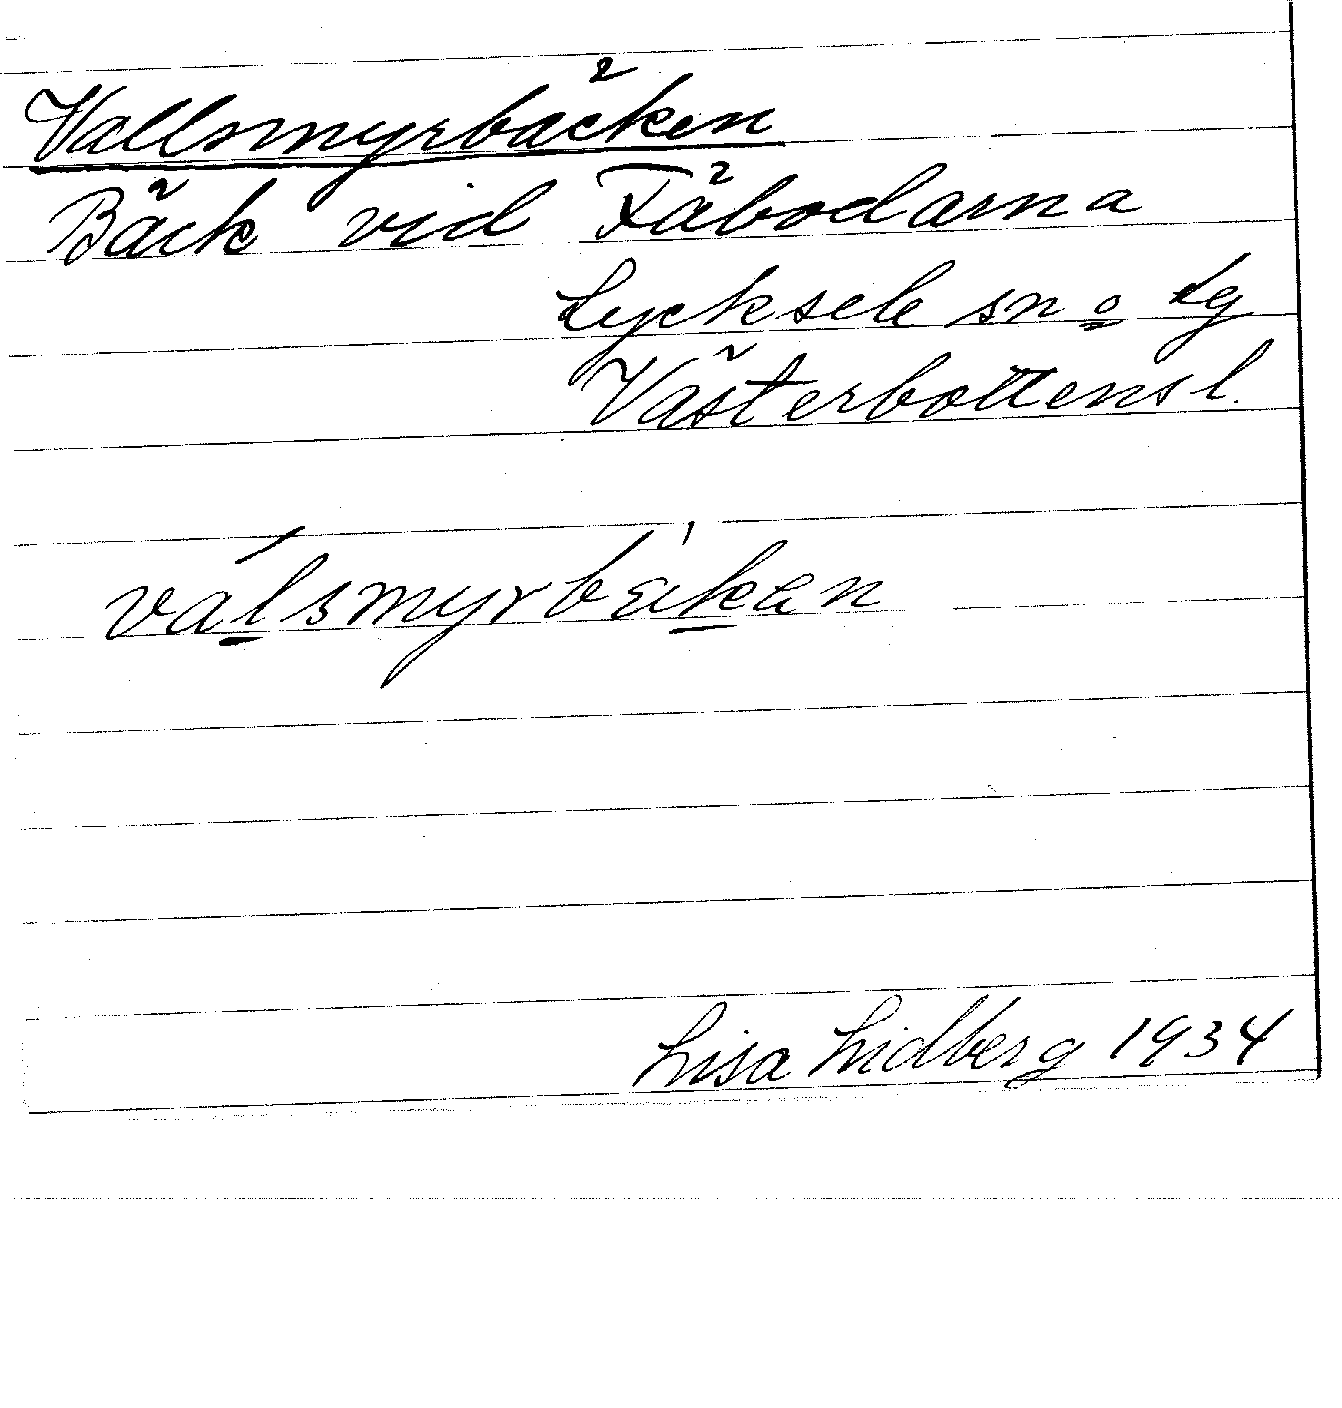 Vallsmyrbäcken
Bäck vid Fäbodarna
Lycksele sn o lg
Västerbottensl.
válsmyrbäkan
Lisa Lidberg 1934